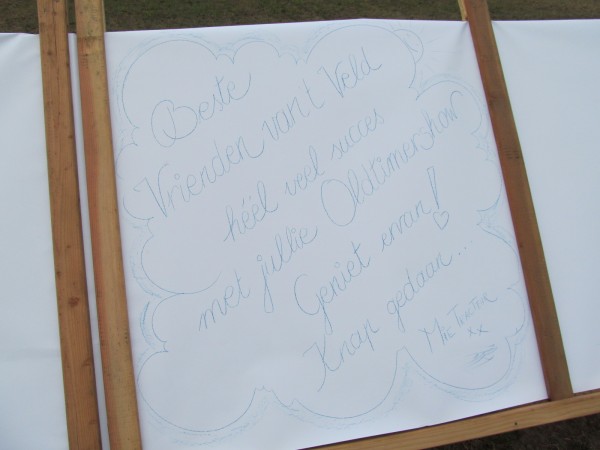 Beste
Vrienden van 't Veld
héél veel succes
met jullie Oldtimershow
Geniet ervan!
Knap gedaan...
Mie Tractor
xx